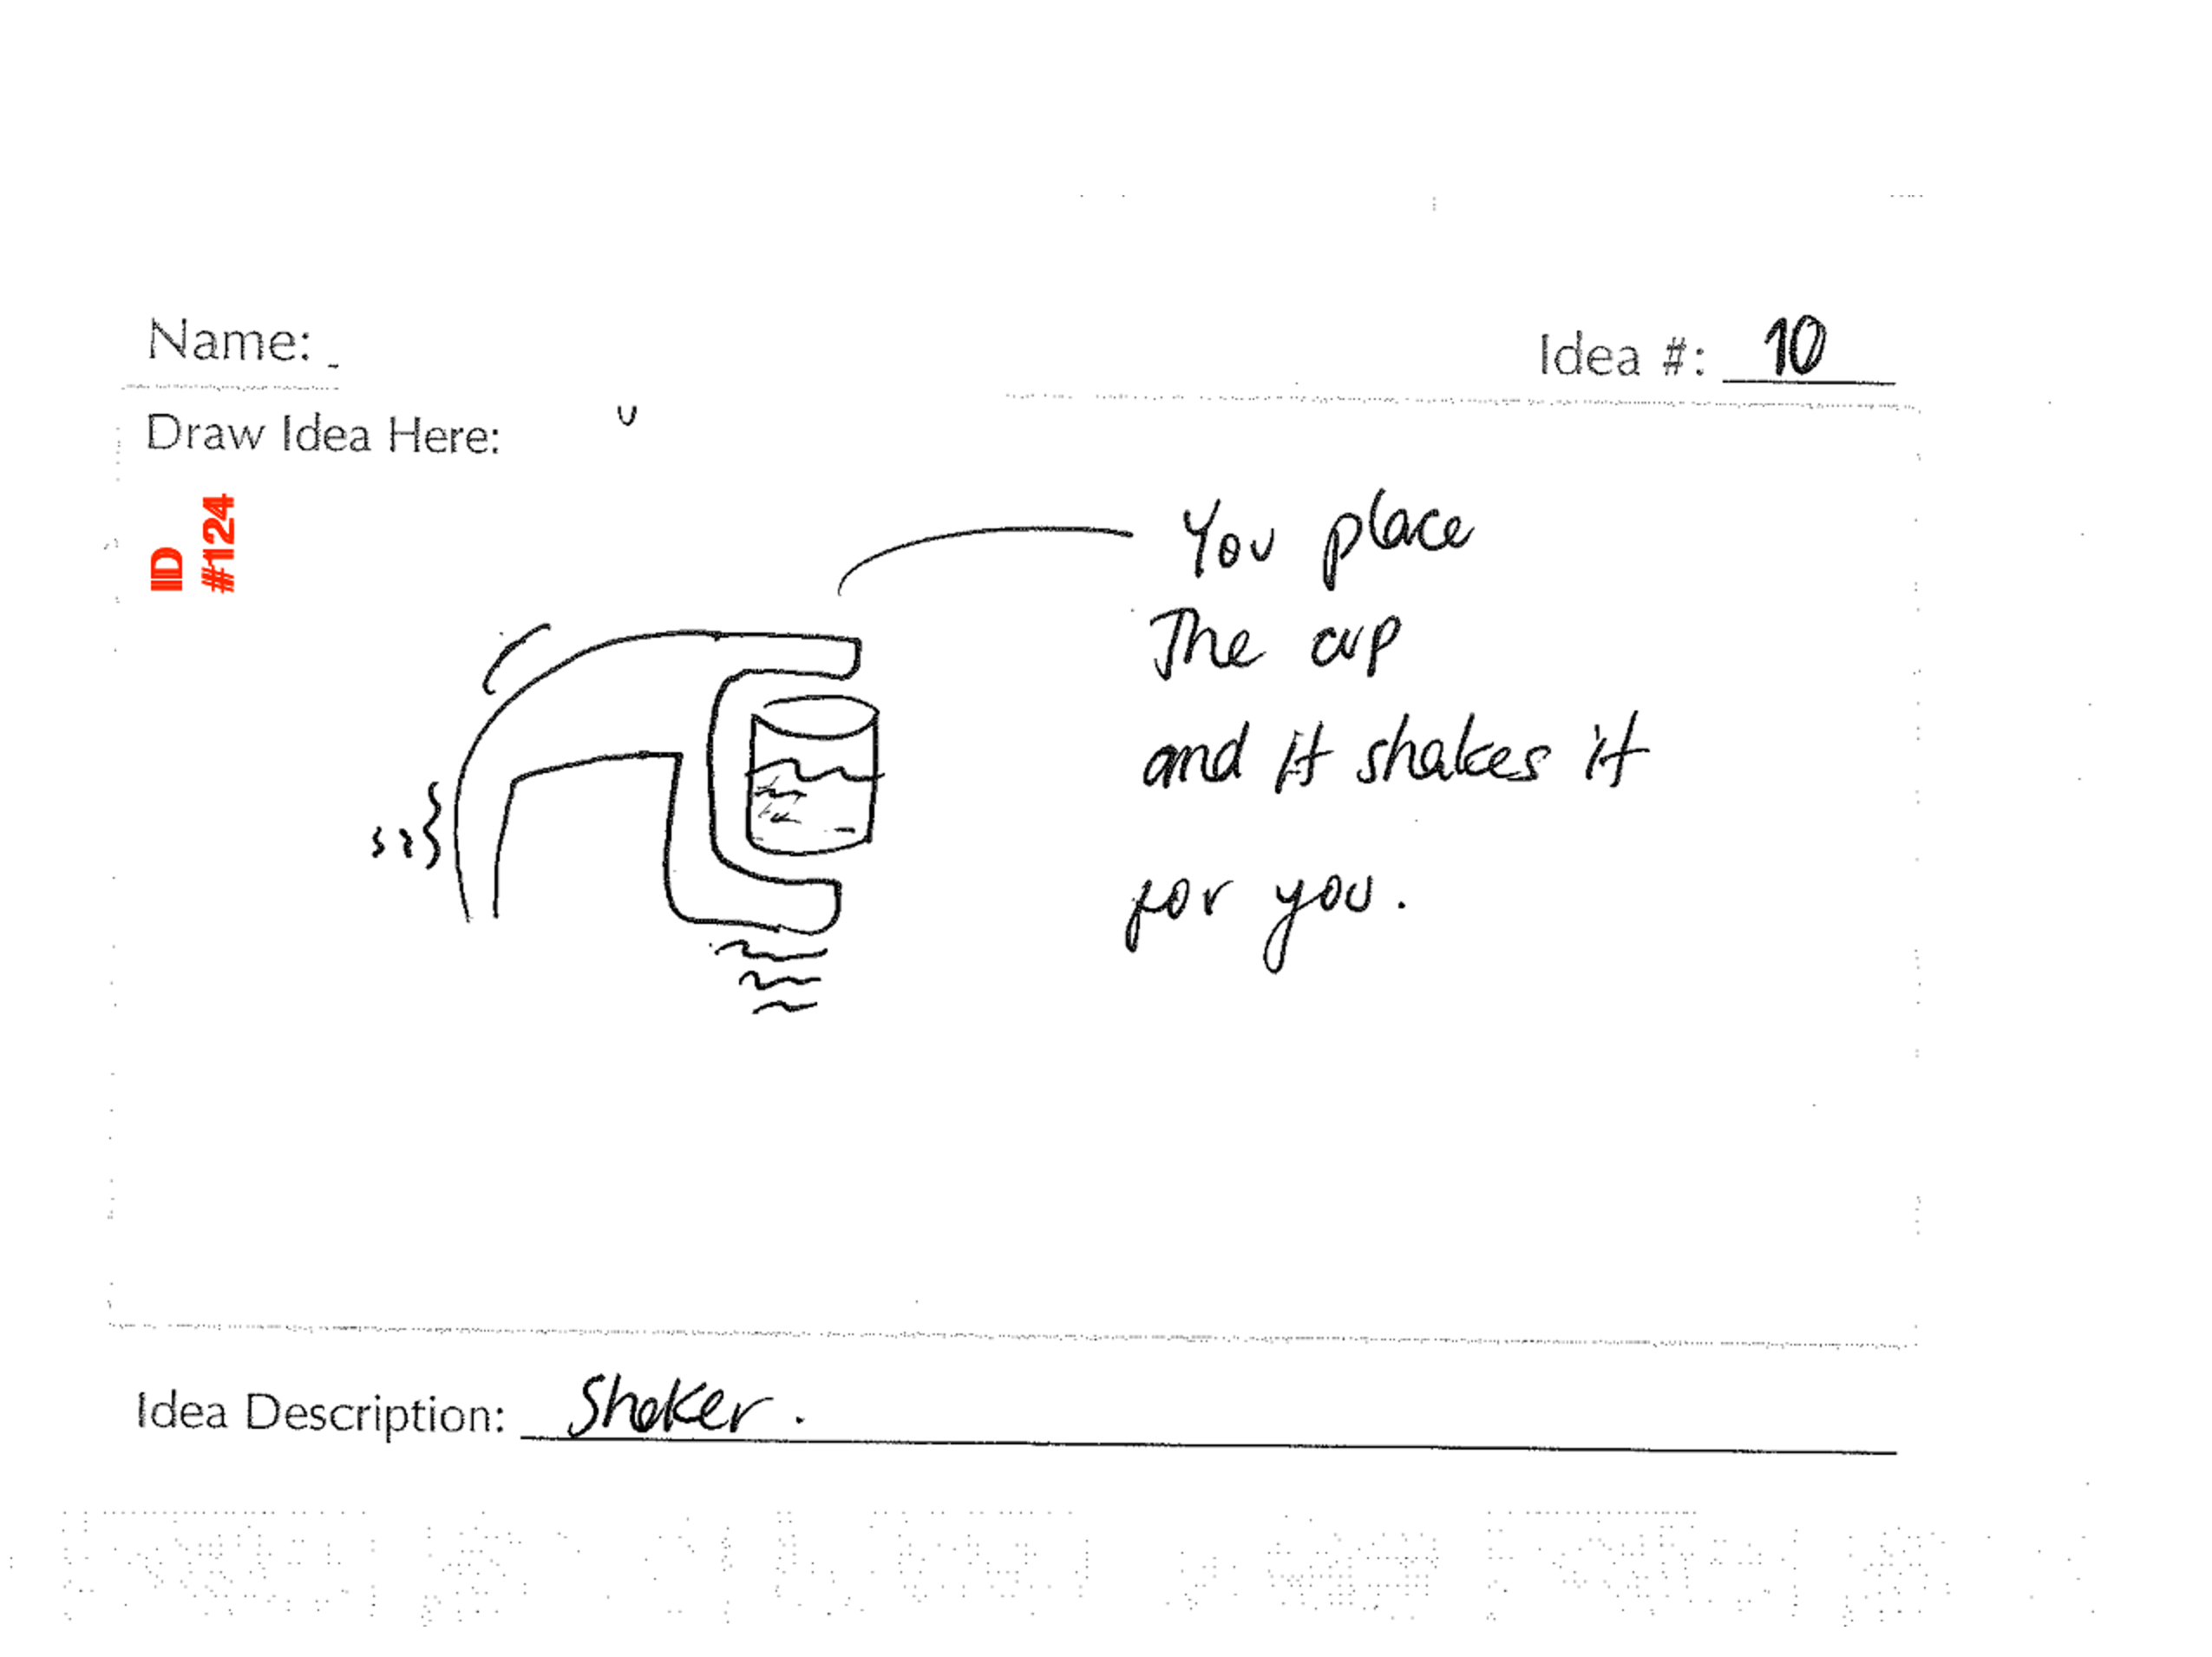 Name:
Idea #: 10
Draw Idea Here:
ID
#124
You place
The cup
and it shakes it
for you.
Idea Description: Shaker.